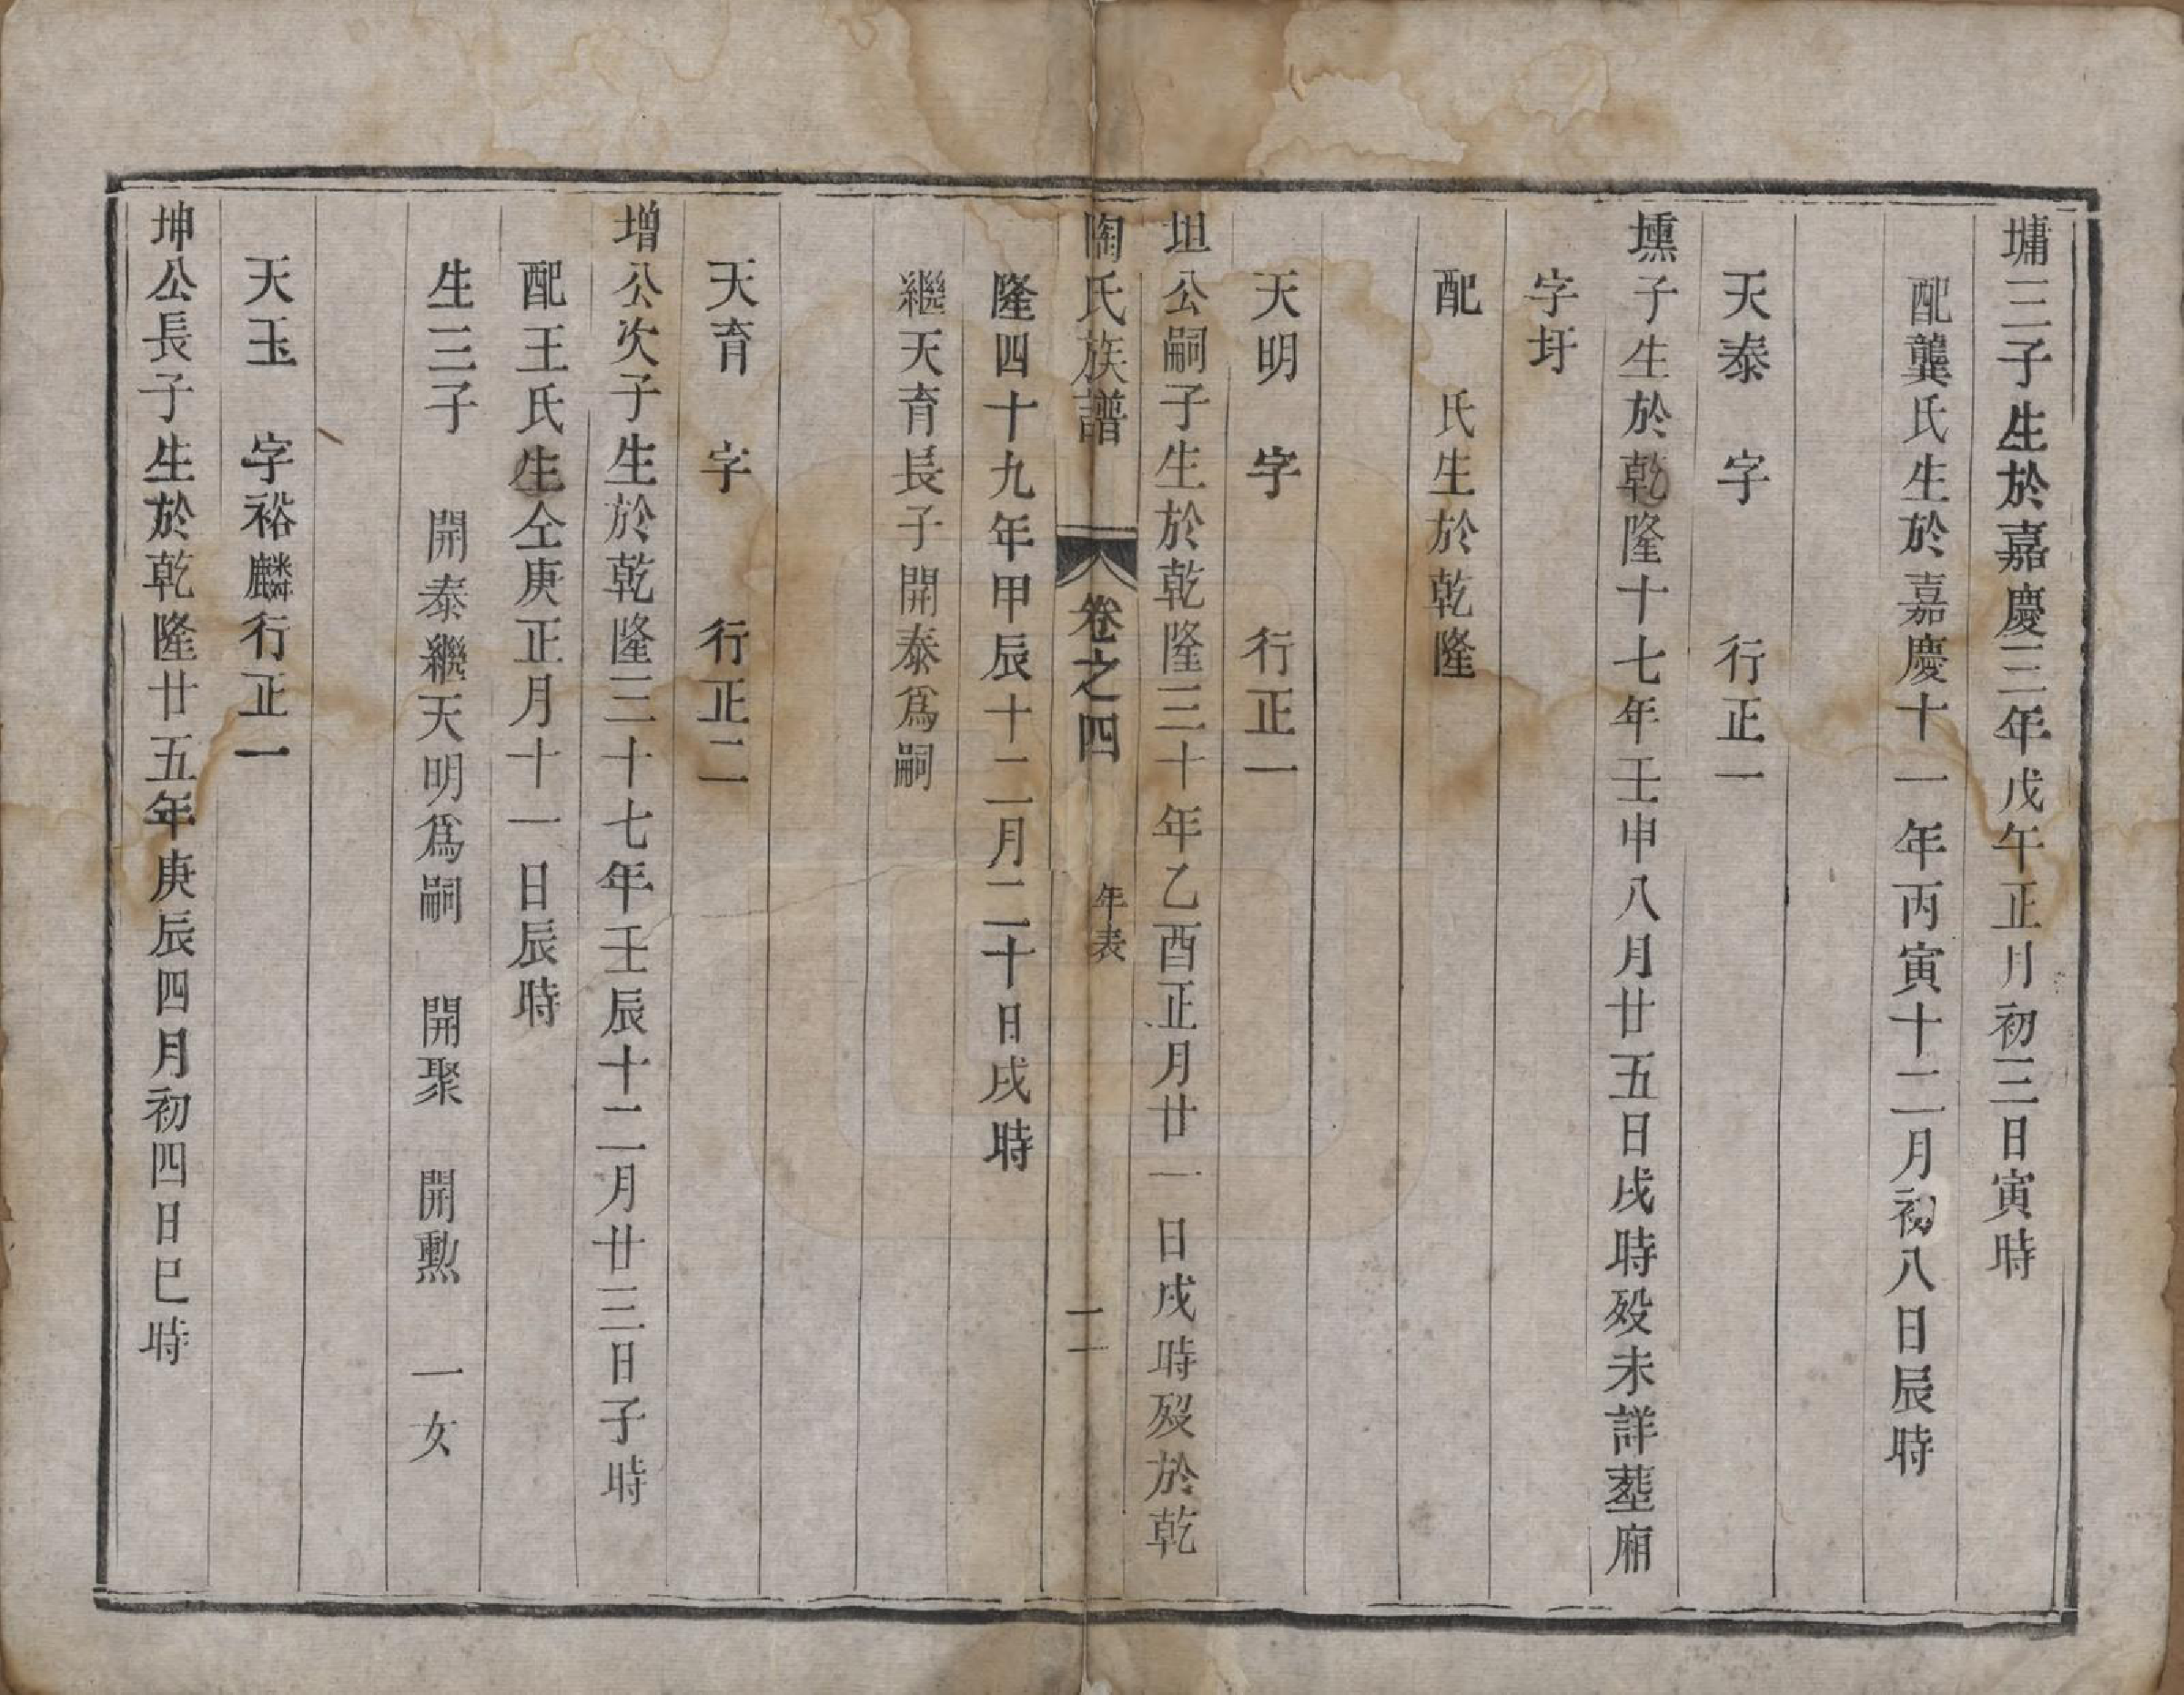 墉三子生於嘉慶三年戊午正月初三日寅時
配龔氏生於嘉慶十一年丙寅十二月初八日辰時
天泰　字　　行正一
壎子生於乾隆十七年壬申八月廿五日戌時歿未詳塟廂
字圩
配　氏生於乾隆
天明　字　　行正一
坦公嗣子生於乾隆三十年乙酉正月廿一日戌時歿於乾
陶氏族譜　卷之四　年表　二
隆四十九年甲辰十二月二十日戌時
繼天育長子開泰爲嗣
天育　字　　行正二
增公次子生於乾隆三十七年壬辰十二月廿三日子時
配王氏生仝庚正月十一日辰時
生三子　開泰繼天明爲嗣　開聚　開勲　一女
天玉　字裕麟行正一
坤公長子生於乾隆廿五年庚辰四月初四日巳時